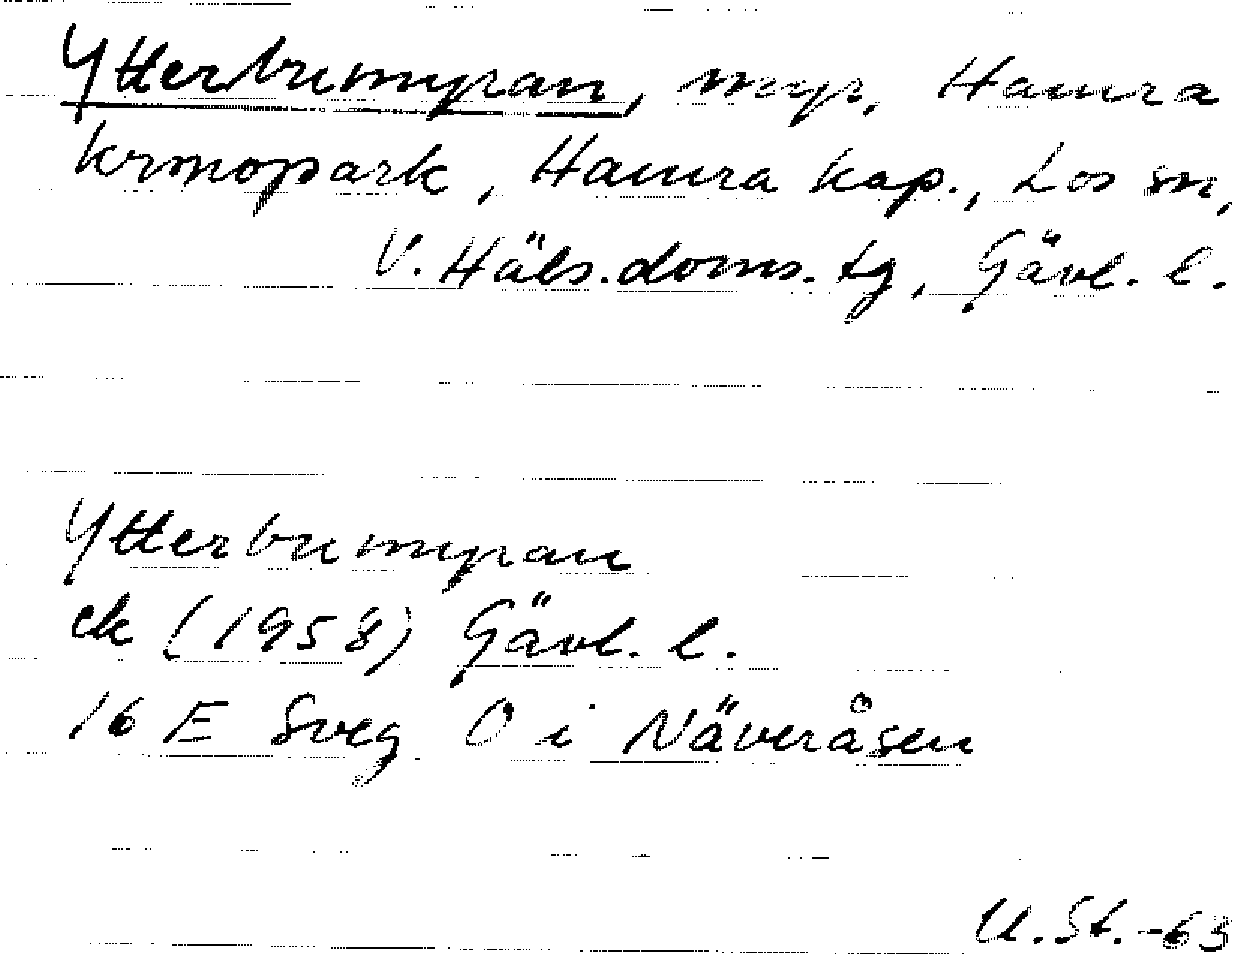 Ytterbrumyran, myr, Hamra
kronopark, Hamra kap., Los sn,
V. Häls. doms. tg, Gävl. l.
Ytterbrumyran
ek (1958) Gävl. l.
16 E Sveg O i Näveråsen
U. St. -63